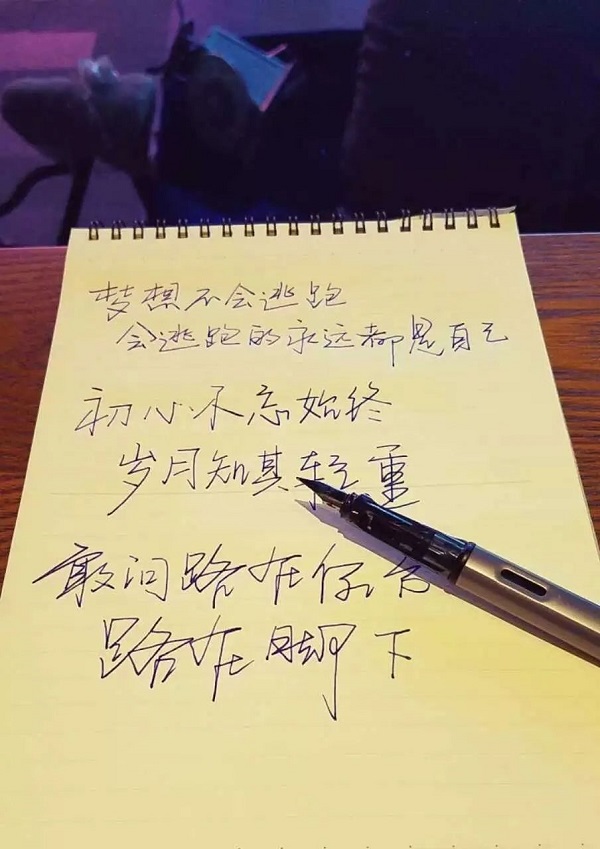 梦想不会逃跑
会逃跑的永远都是自己
初心不忘始终
岁月知其轻重
敢问路在何方
路在脚下